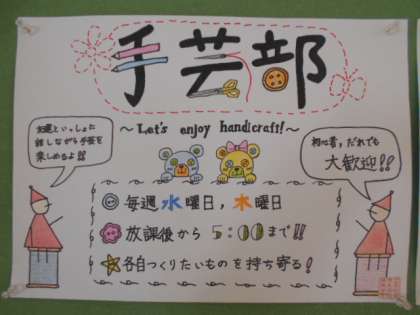 手芸部
～Let's enjoy handicraft!～
友達といっしょに
話しながら手芸を
楽しめるよ!!
初心者,だれでも
大歓迎!!
毎週水曜日,木曜日
放課後から5:00まで!!
各自つくりたいものを持ち寄る!